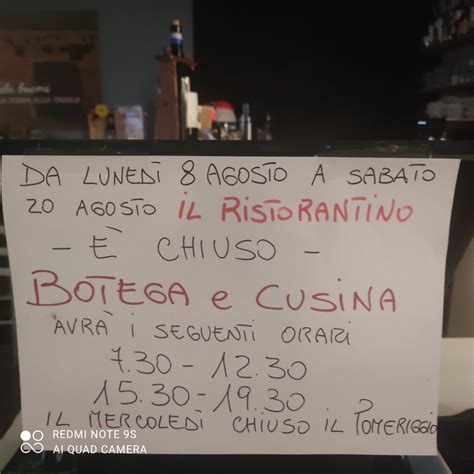 DA LUNEDÌ 8 AGOSTO A SABATO
20 AGOSTO IL RISTORANTINO
- È CHIUSO -
BOTEGA e CUSINA
AVRÀ I SEGUENTI ORARI
7.30 - 12.30
15.30 - 19.30
IL MERCOLEDÌ CHIUSO IL POMERIGGIO
REDMI NOTE 9S
AI QUAD CAMERA